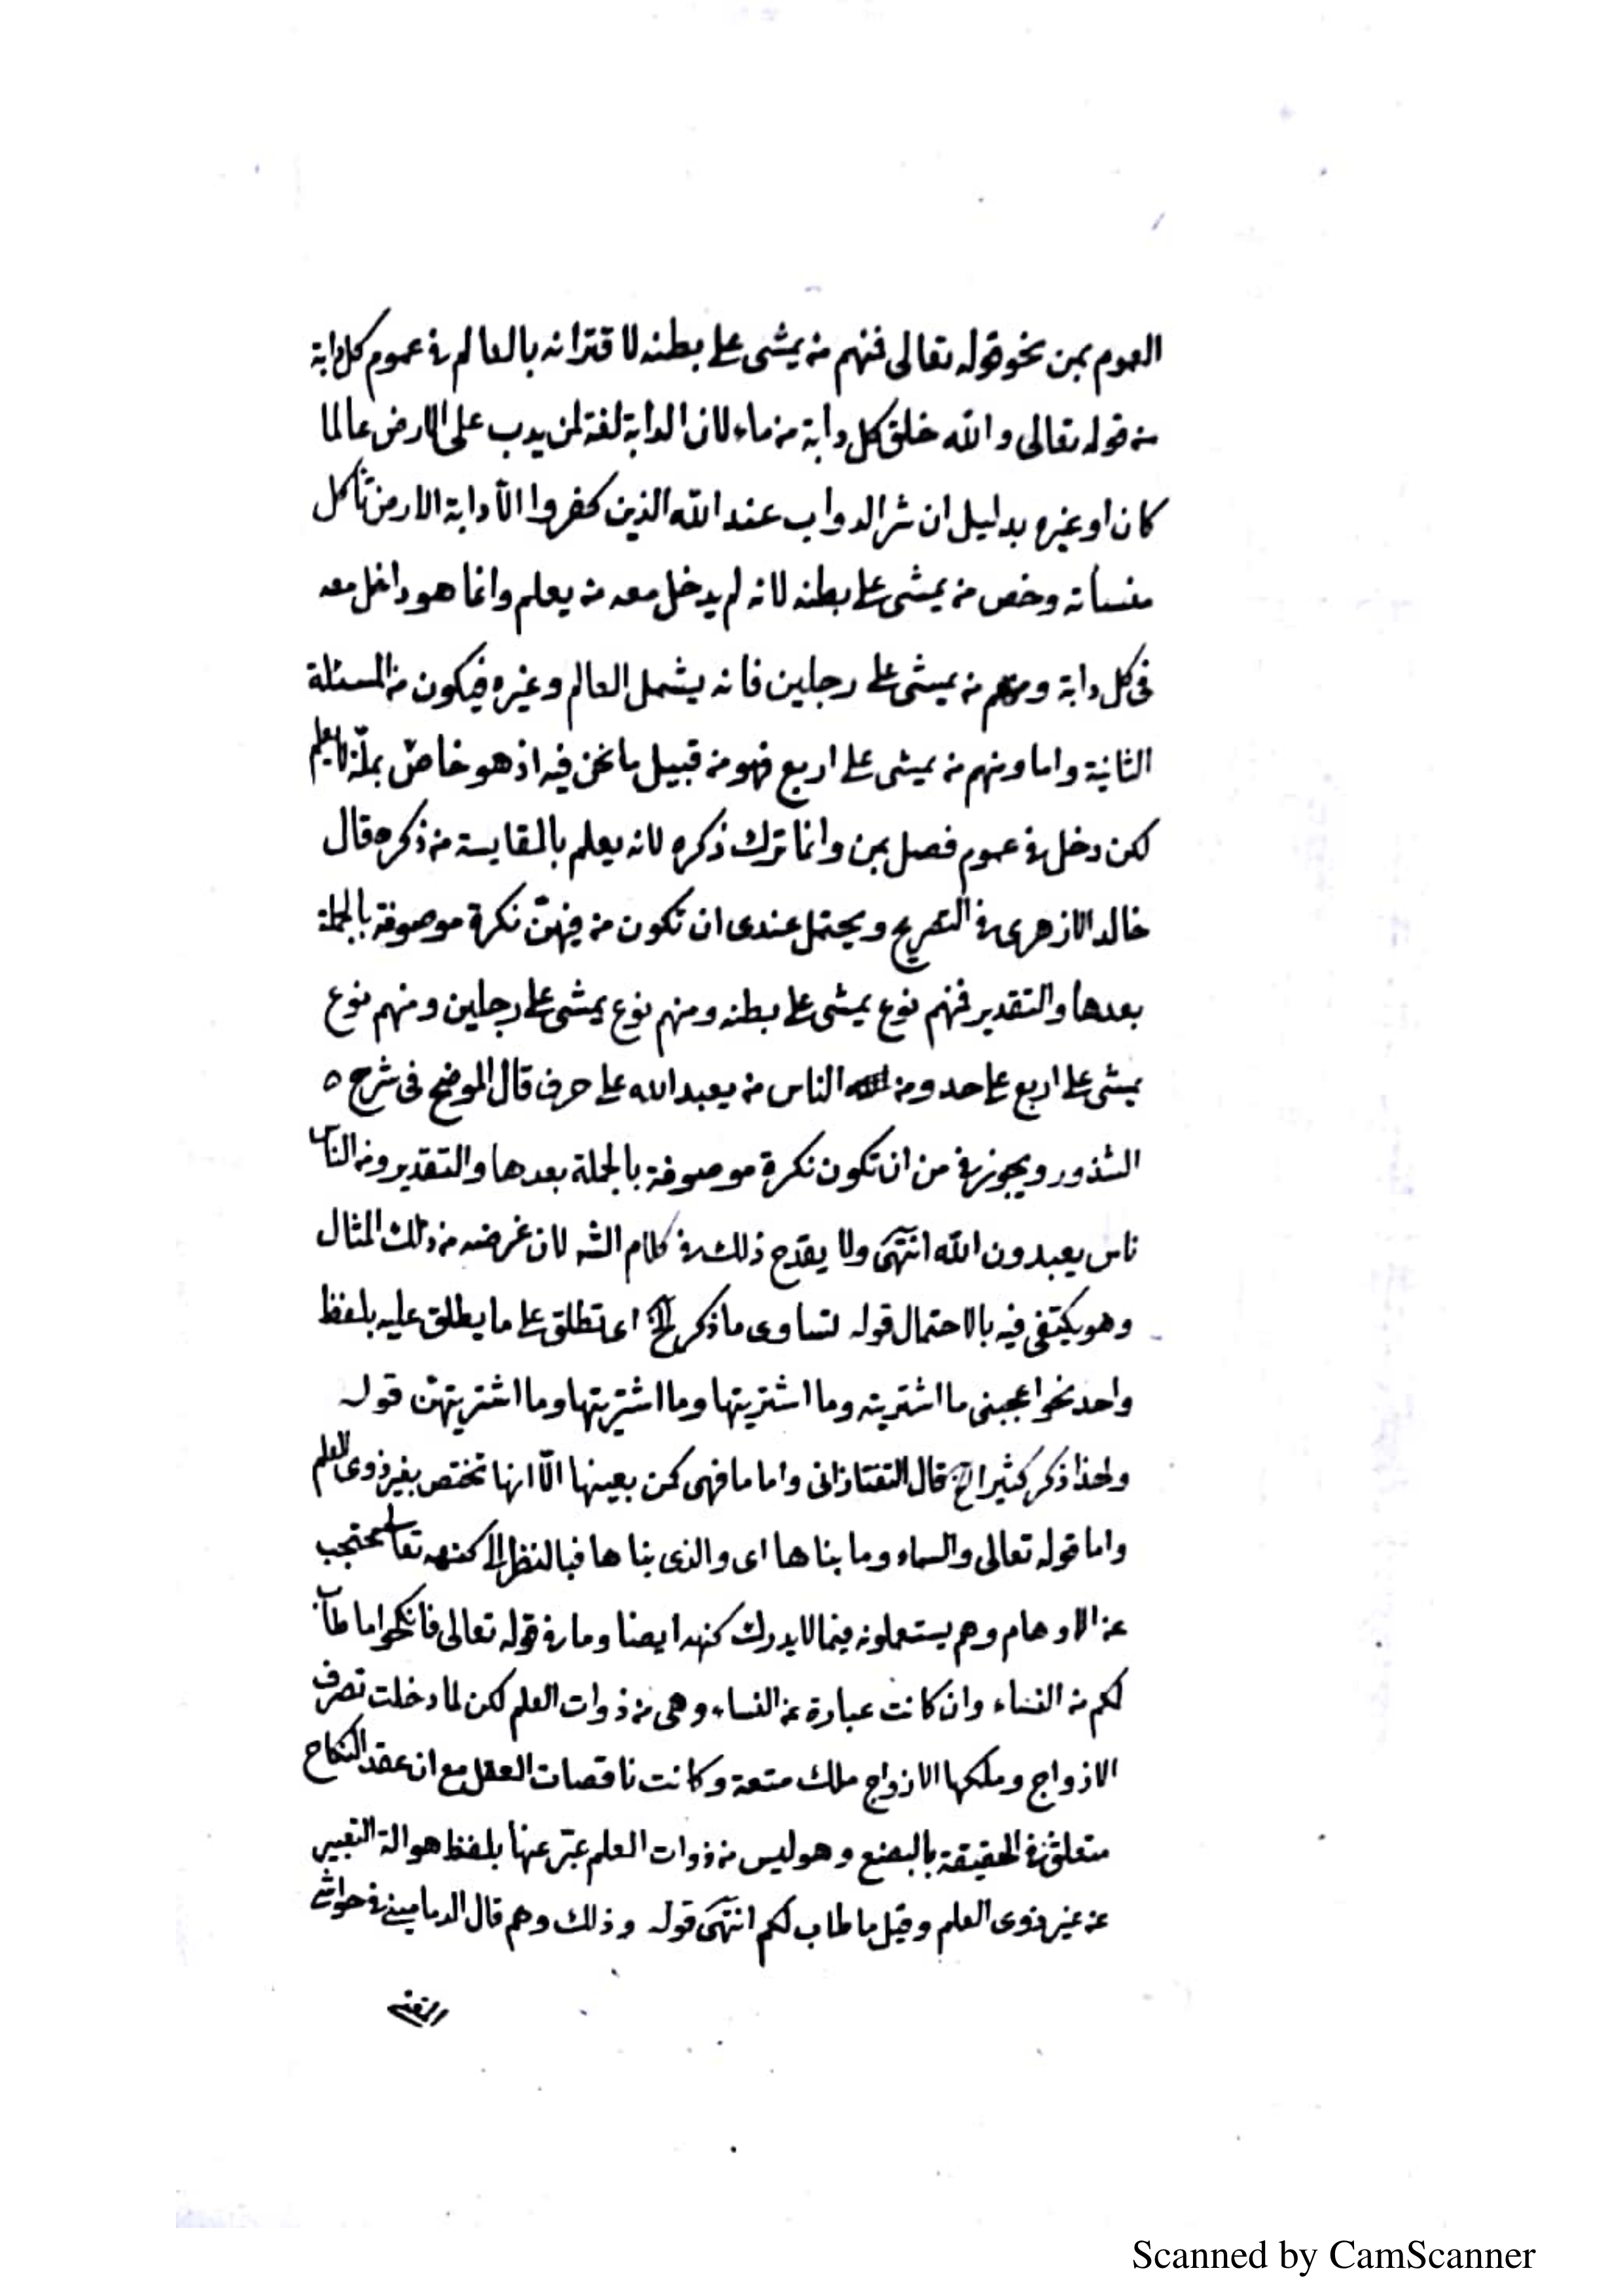 العموم بمن نحو قوله تعالى فمنهم من يمشى على بطنه لاقترانه بالعالم فى عموم كل دابة
من قوله تعالى والله خلق كل دابة من ماء لان الدابة لغة لمن يدب على الارض عالما
كان او غيره بدليل ان شر الدواب عند الله الذين كفروا الّا دابة الارض تأكل
منسأته وخص من يمشى على بطنه لانه لم يدخل معه من يعلم وانما هو داخل معه
فى كل دابة ومنهم من يمشى على رجلين فانه يشمل العالم وغيره فيكون من المسئلة
الثانية واما ومنهم من يمشى على اربع فهو من قبيل ما نحن فيه اذ هو خاصّ بما لا يعلم
لكن دخل فى عموم فصل بمن وانما ترك ذكره لانه يعلم بالمقايسة من ذكره قال
خالد الازهرى فى التصريح ويحتمل عندى ان تكون من فيهنّ نكرة موصوفة بالجملة
بعدها والتقدير فمنهم نوع يمشى على بطنه ومنهم نوع يمشى على رجلين ومنهم نوع
يمشى على اربع على حد ومن الناس من يعبد الله على حرف قال الموضح فى شرح ه
الشذور ويجوز فى من ان تكون نكرة موصوفة بالجملة بعدها والتقدير ومن الناس
ناس يعبدون الله انتهى ولا يقدح ذلك فى كلام الشه لان غرضه من ذلك المثال
وهو يكتفى فيه بالاحتمال قوله لتساوى ما ذكر الخ اى تطلق على ما يطلق عليه بلفظ
واحد نحو اعجبنى ما اشتريته وما اشتريتها وما اشتريتهما وما اشتريتهنّ قوله
ولهذا ذكر كثير الخ قال التفتازانى واما ما فهى كمن بعينها الّا انها تختص بغير ذوى العلم
واما قوله تعالى والسماء وما بناها اى والذى بناها فبالنظر الى كنهه تعالى محتجب
عن الاوهام وهم يستعملونه فيما لا يدرك كنهه ايضا وما فى قوله تعالى فانكحوا ما طاب
لكم من النساء وان كانت عبارة عن النساء وهى من ذوات العلم لكن لما دخلت تصرف
الازواج وملكها الازواج ملك متعة وكانت ناقصات العقل مع ان عقد النكاح
متعلق فى الحقيقة بالبضع وهو ليس من ذوات العلم عبّر عنها بلفظ هو الة التعبير
عن غير ذوى العلم وقيل ما طاب لكم انتهى قوله وذلك وهم قال الدمامينى فى حواشى